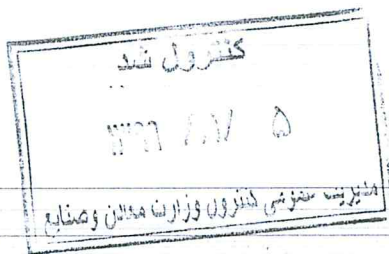 کنترول شد
۱۳۹۶ / ۸ / ۵
مدیریت عمومی کنترول وزارت معادن وصنایع